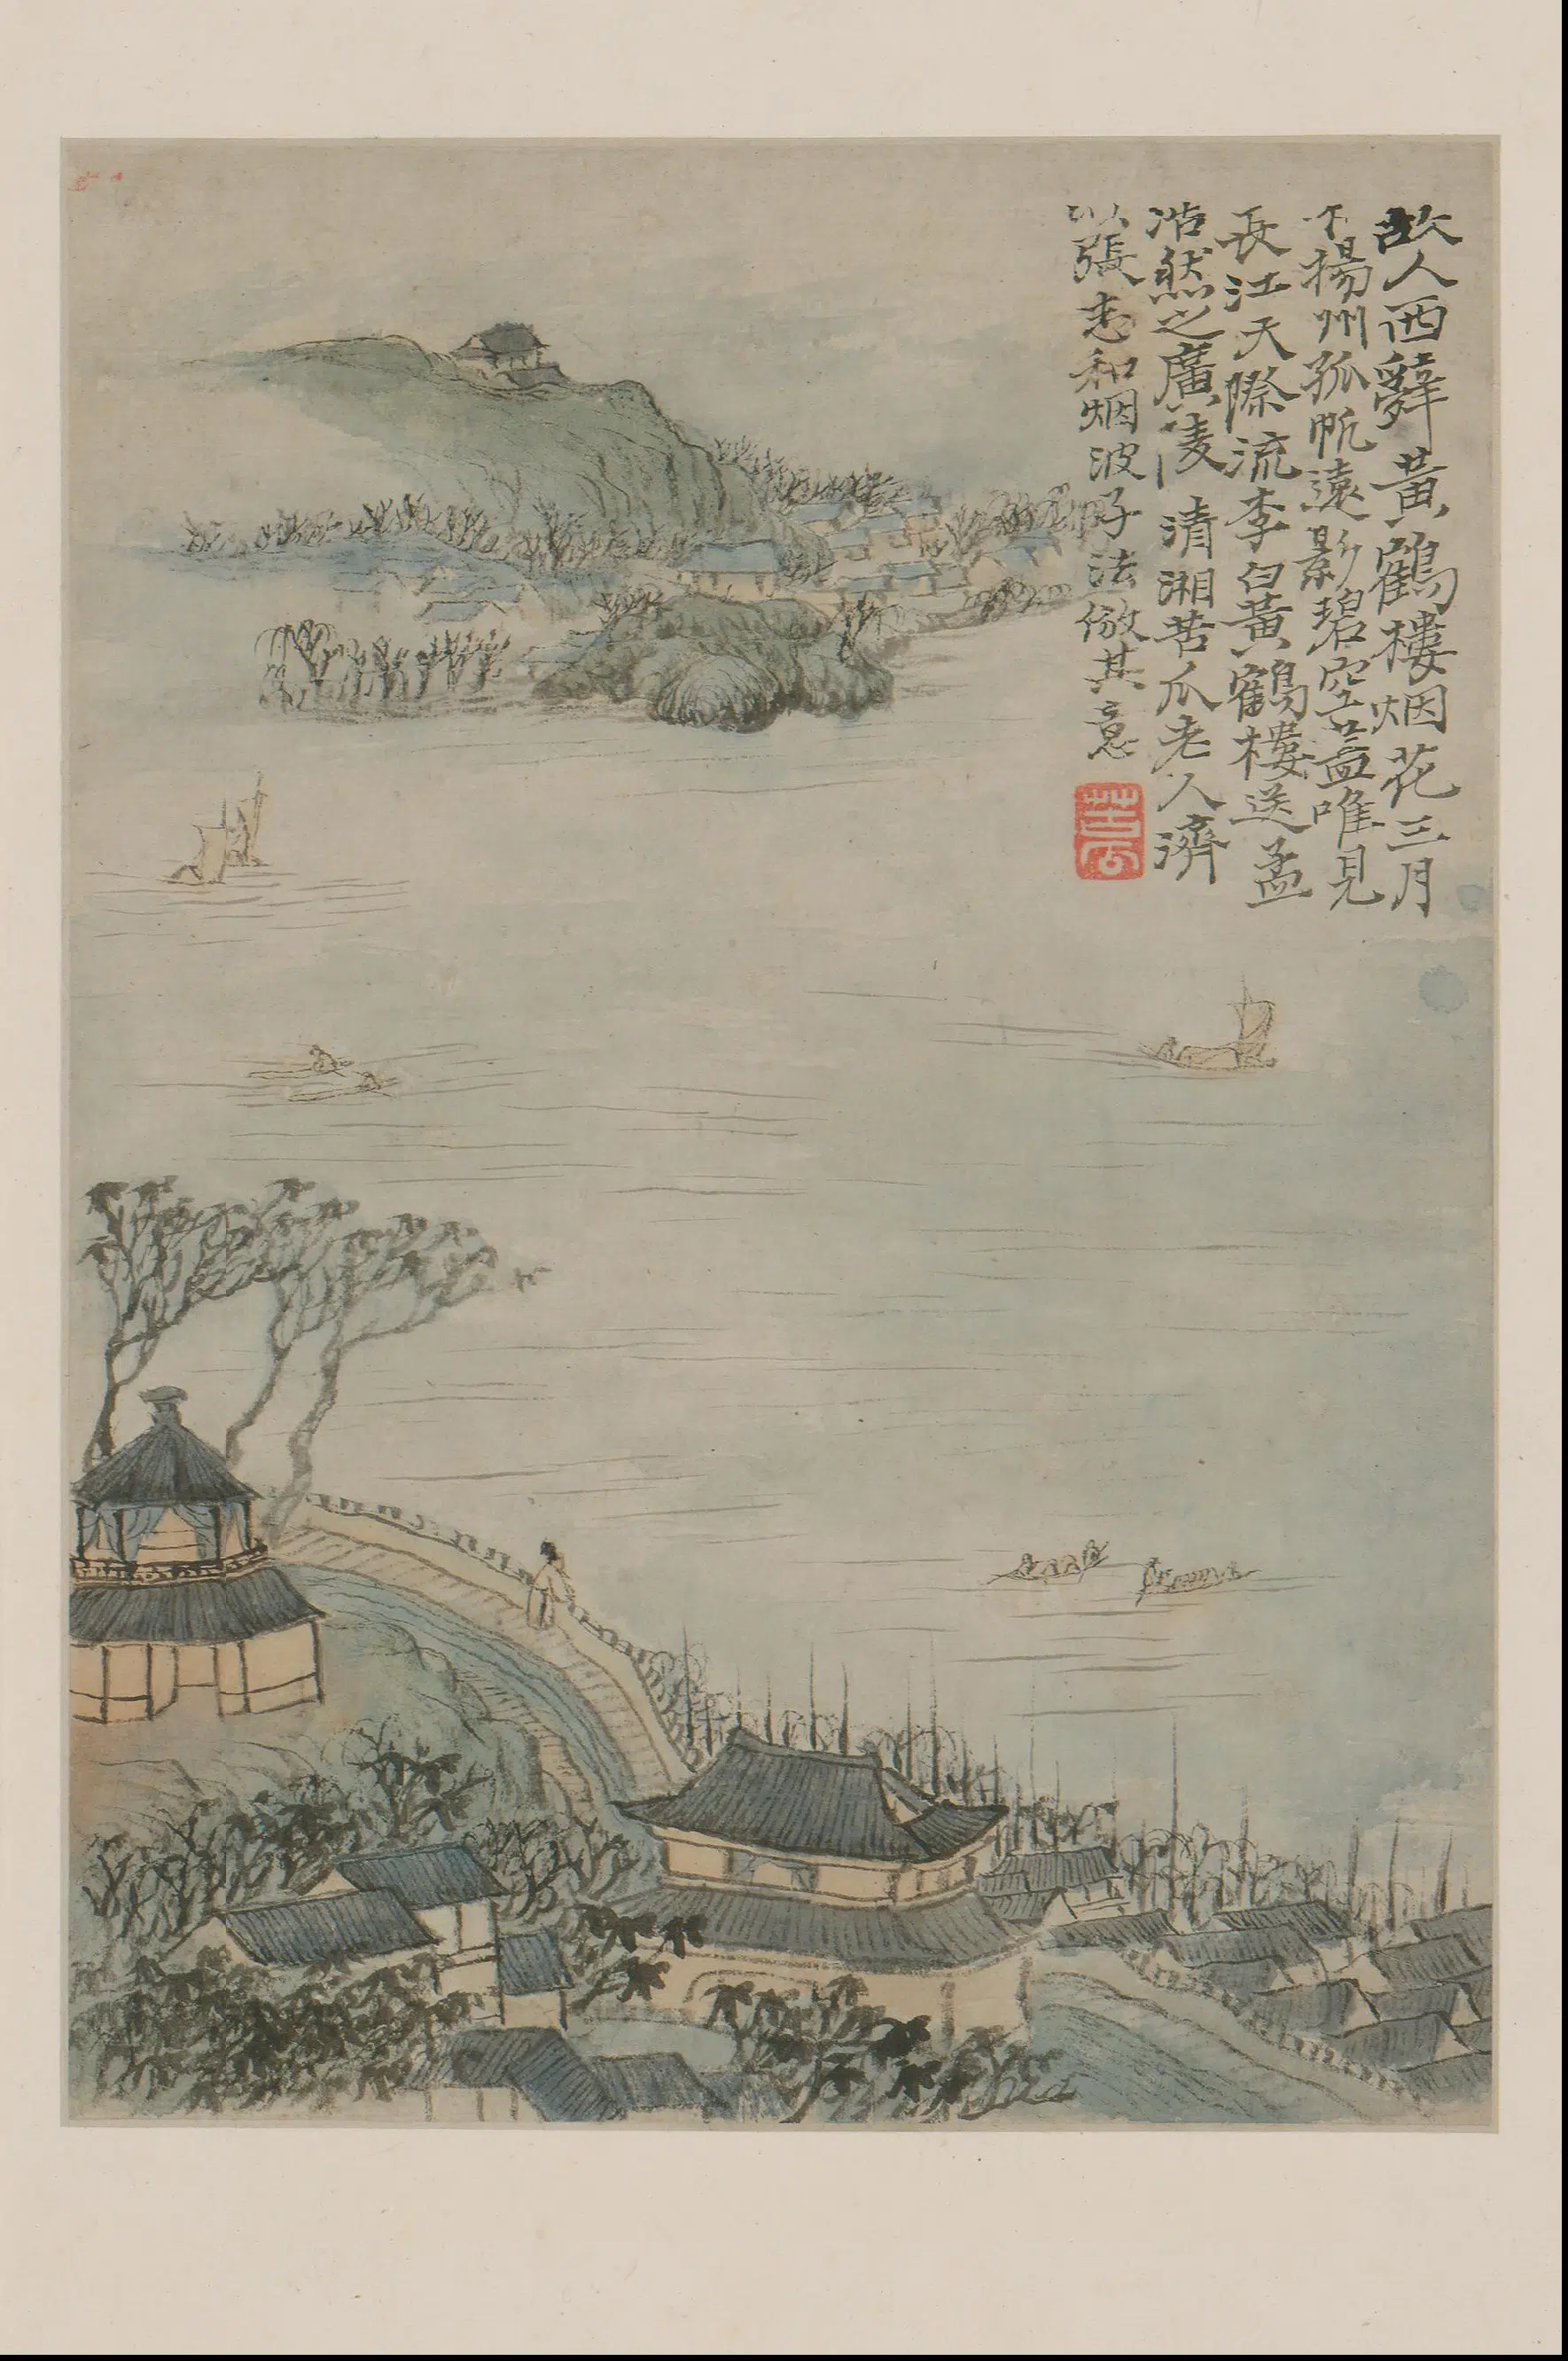 故人西辭黃鶴樓烟花三月
下揚州孤帆遠影碧空盡唯見
長江天際流李白黃鶴樓送孟
浩然之廣陵 清湘苦瓜老人濟
以張志和烟波子法倣其意
苦瓜